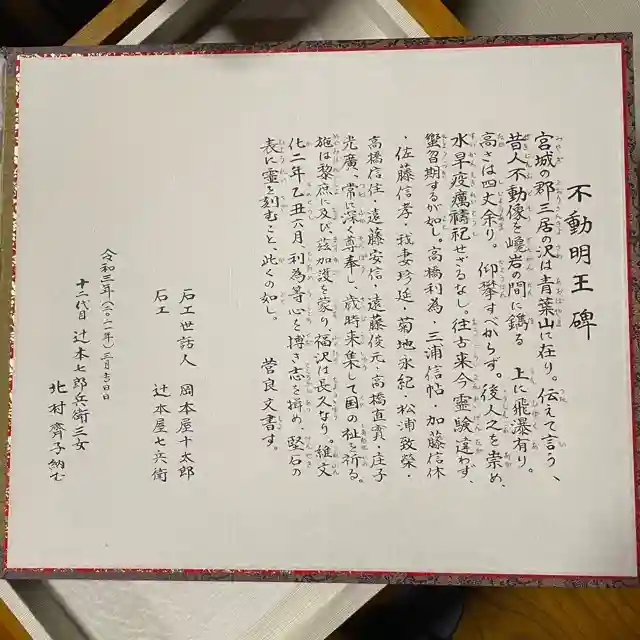 不動明王碑
宮城の郡三居の沢は青葉山に在り。伝えて言う、
昔人不動像を巉岩の間に鐫る 上に飛瀑有り。
高さは四丈余り。仰攀すべからず。後人之を崇め、
水旱疫癘祷祀せざるなし。往古来今霊験違わず、
響曶期するが如し。高橋利為・三浦信帖・加藤信休
・佐藤信孝・我妻珍延・菊地永紀・松浦致榮・
高橋信任・遠藤安信・遠藤俊元・高橋直賓・庄子
光廣、常に深く尊奉し、歳時来集して国の祉を祈る。
施は黎庶に及び、茲加護を蒙り福沢は長久なり。維文
化二年乙丑六月、利為等心を摶き志を揖め、堅石の
表に霊を刻むこと、此くの如し。 菅良文書す。
石工世話人 岡本屋十太郎
石工 辻本屋七兵衛
令和三年(二〇二一年)三月吉日
十二代目 辻本七郎兵衛三女
北村齊子納む